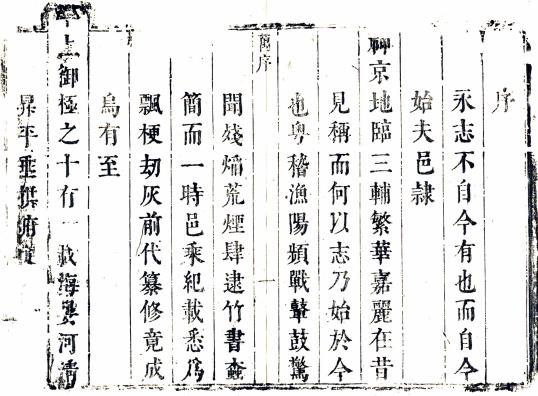 序
永志不自今有也而自今
始夫邑隷
神京地臨三輔繁華嘉麗在昔
見稱而何以志乃始於今
也粤稽漁陽頻戰鼙鼓驚
舊序
一
聞殘熖荒煙肆逮竹書蠹
簡而一時邑乘紀載悉爲
飄梗刧灰前代纂修竟成
烏有至
上御極之十有一載海晏河清
昇平垂拱